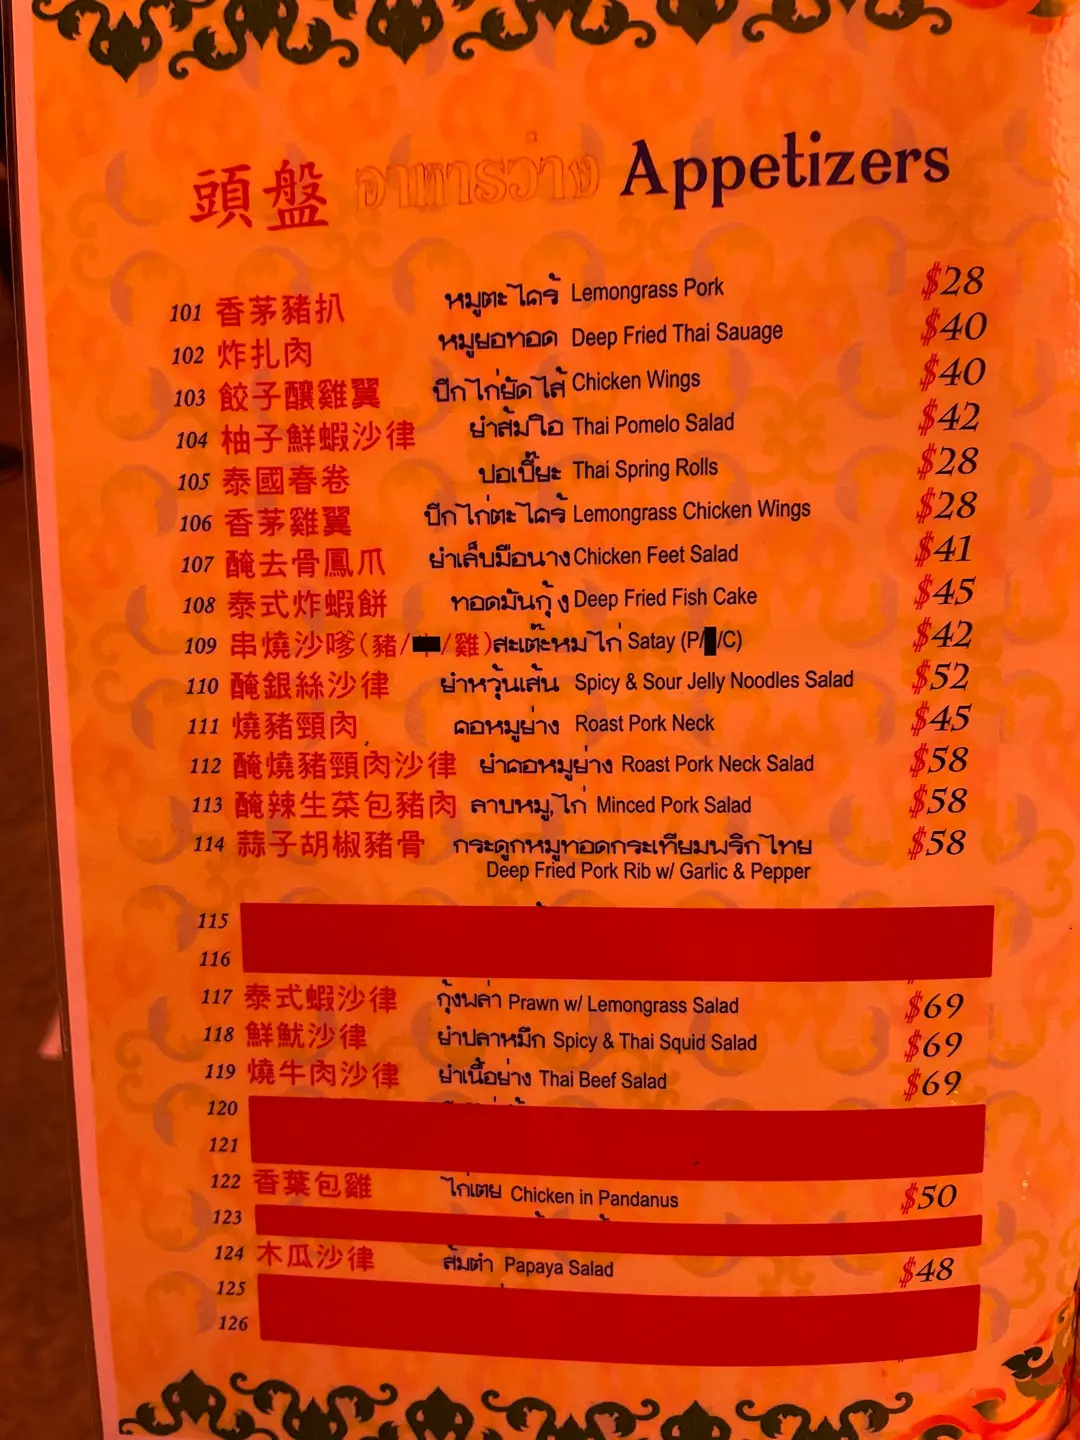 頭盤 อาหารว่าง Appetizers
101 香茅豬扒 หมูตะไคร้ Lemongrass Pork $28
102 炸扎肉 หมูยอทอด Deep Fried Thai Sauage $40
103 餃子釀雞翼 ปีกไก่ยัดไส้ Chicken Wings $40
104 柚子鮮蝦沙律 ยำส้มโอ Thai Pomelo Salad $42
105 泰國春卷 ปอเปี๊ยะ Thai Spring Rolls $28
106 香茅雞翼 ปีกไก่ตะไคร้ Lemongrass Chicken Wings $28
107 醃去骨鳳爪 ยำเล็บมือนาง Chicken Feet Salad $41
108 泰式炸蝦餅 ทอดมันกุ้ง Deep Fried Fish Cake $45
109 串燒沙嗲(豬/ /雞) สะเต๊ะหมูไก่ Satay (P/ /C) $42
110 醃銀絲沙律 ยำหวุ้นเส้น Spicy & Sour Jelly Noodles Salad $52
111 燒豬頸肉 คอหมูย่าง Roast Pork Neck $45
112 醃燒豬頸肉沙律 ยำคอหมูย่าง Roast Pork Neck Salad $58
113 醃辣生菜包豬肉 ลาบหมู,ไก่ Minced Pork Salad $58
114 蒜子胡椒豬骨 กระดูกหมูทอดกระเทียมพริกไทย $58
Deep Fried Pork Rib w/ Garlic & Pepper
115
116
117 泰式蝦沙律 กุ้งพล่า Prawn w/ Lemongrass Salad $69
118 鮮魷沙律 ยำปลาหมึก Spicy & Thai Squid Salad $69
119 燒牛肉沙律 ยำเนื้อย่าง Thai Beef Salad $69
120
121
122 香葉包雞 ไก่เตย Chicken in Pandanus $50
123
124 木瓜沙律 ส้มตำ Papaya Salad $48
125
126